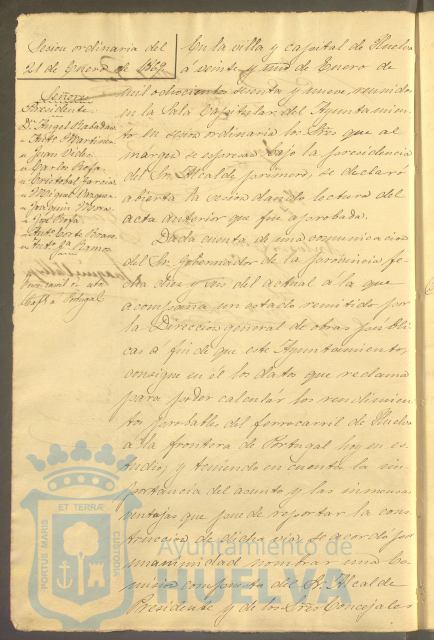 Sesion ordinaria del
21 de Enero de 1869
Señores
Presidente
Dn. Angel Rabadan
" Antº Martinez
" Juan
" Carlos Rofa
" Cristobal Garcia
" Miguel Vazquez
" Joaquin Mora
" José Rofa
" Antº Corte
" Antº Gª Ramos
Ferro carril de esta
Capl. a Portugal
En la villa y capital de Huelva
á veinte y uno de Enero de
mil ochocientos sesenta y nueve, reunidos
en la Sala Capitular del Ayuntamien
to en sesion ordinaria los Sres que al
margen se espresan bajo la presidencia
del Sr. Alcalde primero, se declaró
abierta la sesion dando lectura del
acta anterior que fué aprobada.
Dada cuenta de una comunicacion
del Sr. Gobernador de la provincia fe-
cha diez y seis del actual a la que
acompaña un estado remitido por
la Direccion general de obras públi
cas a fin de que este Ayuntamiento
consigne en él los datos que reclama
para poder calcular los rendimien
tos probables del ferrocarril de Huelva
a la frontera de Portugal hoy en es-
tudio, y teniendo en cuenta la im
portancia del asunto y las inmensas
ventajas que puede reportar la cons
truccion de dicha via, se acordó por
unanimidad nombrar una Co
mision compuesta del Sr. Alcalde
Presidente y de los Sres Concejales
ET TERRÆ
PORTUS MARIS
CUSTODIA
Ayuntamiento de
HUELVA